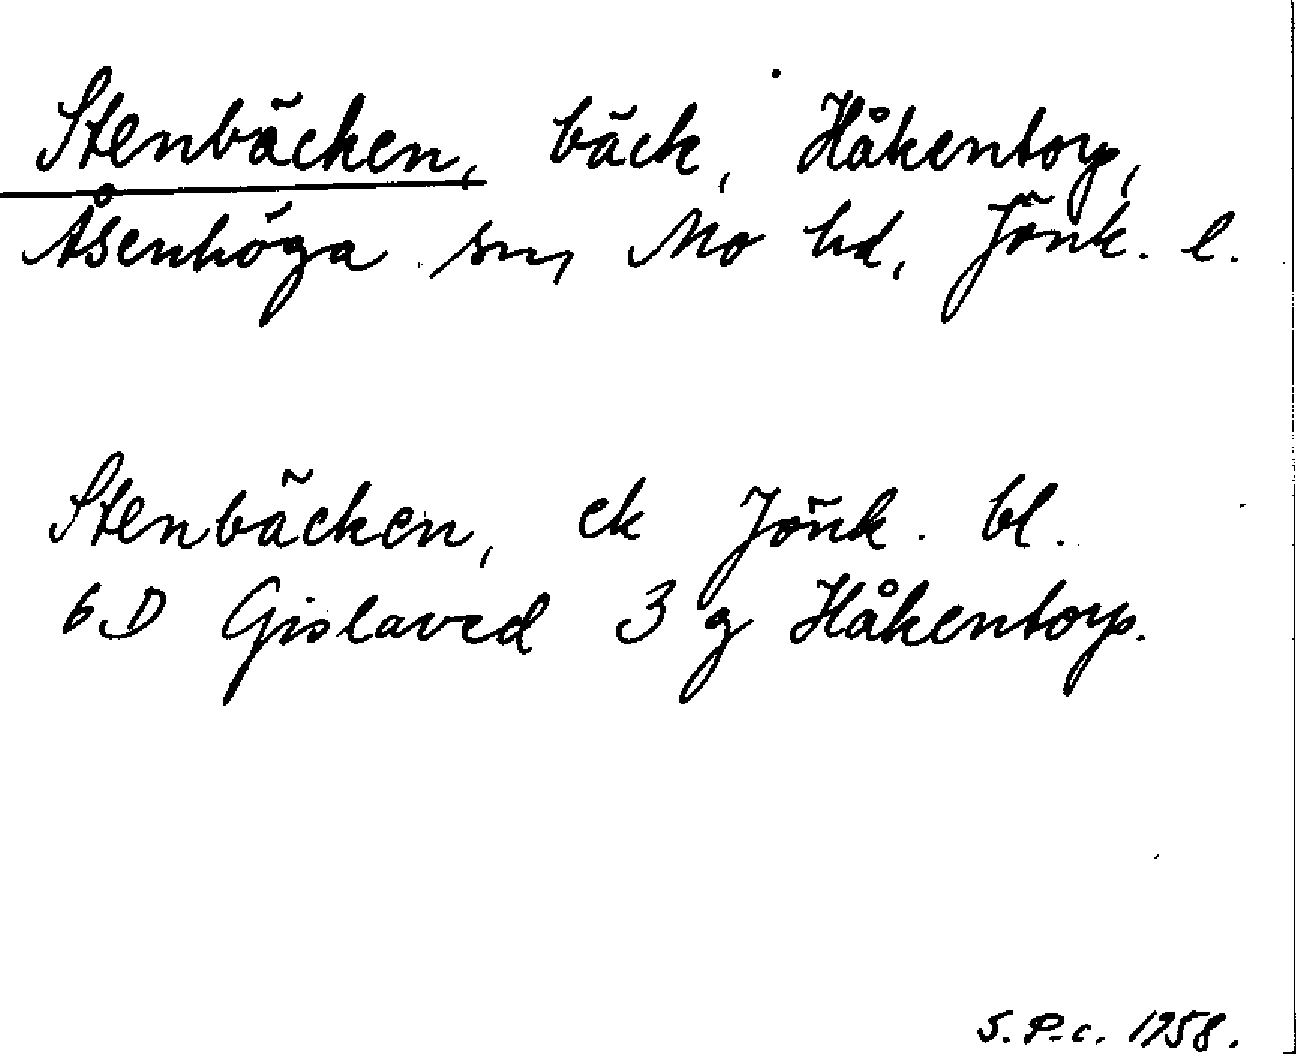 Stenbäcken, bäck, Håkentorp,
Åsenhöga sn, Mo hd, Jönk. l.
Stenbäcken, ek Jönk. bl.
6D Gislaved 3 g Håkentorp.
S. P-c. 1958.